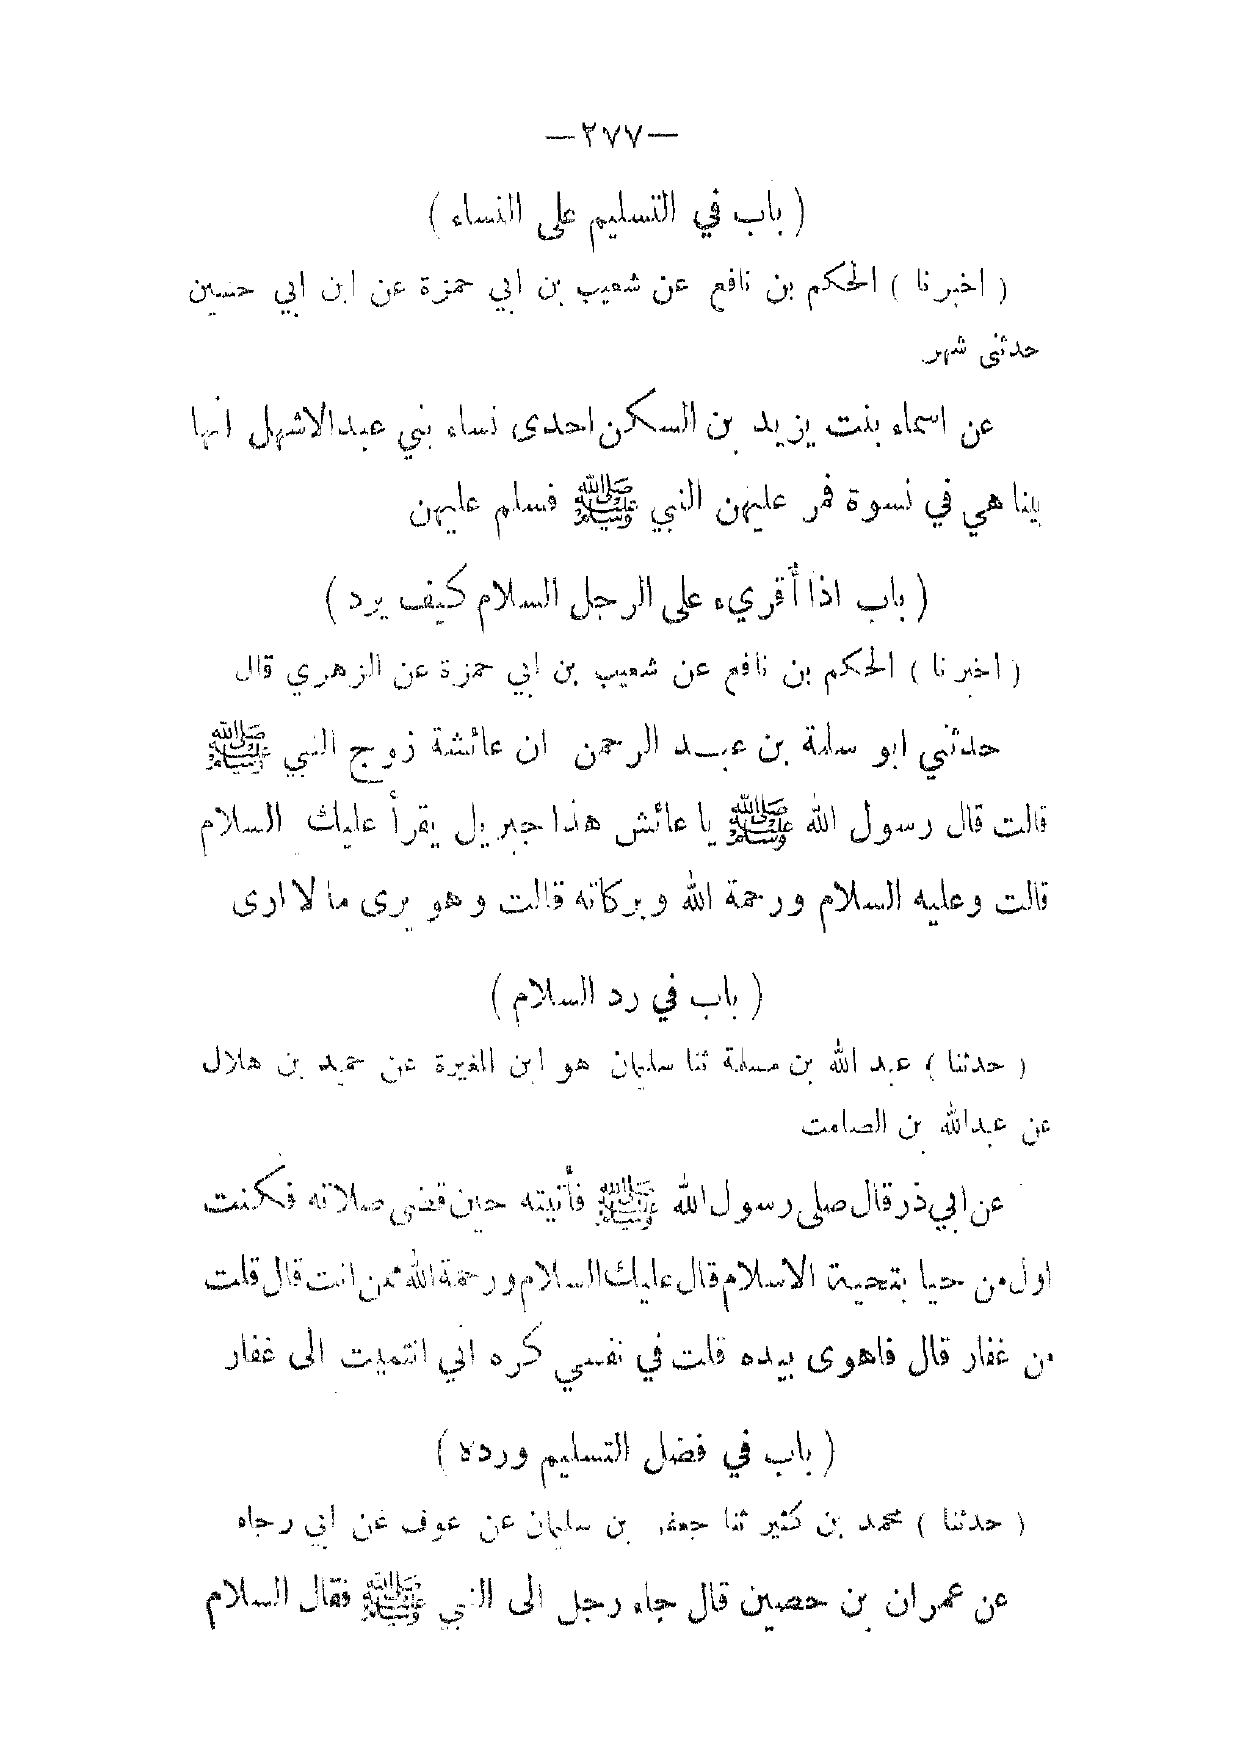 —٢٧٧—
( باب في التسليم على النساء )
( اخبرنا ) الحكم بن نافع عن شعيب بن ابي حمزة عن ابن ابي حسين
حدثنى شهر
عن اسماء بنت يزيد بن السكن احدى نساء بني عبدالاشهل انها
بينا هي في نسوة فمر عليهن النبي ﷺ فسلم عليهن
( باب اذا أقريء على الرجل السلام كيف يرد )
( اخبرنا ) الحكم بن نافع عن شعيب بن ابي حمزة عن الزهري قال
حدثني ابو سلمة بن عبد الرحمن ان عائشة زوج النبي ﷺ
قالت قال رسول الله ﷺ يا عائش هذا جبريل يقرأ عليك السلام
قالت وعليه السلام ورحمة الله وبركاته قالت وهو يرى ما لا ارى
( باب في رد السلام )
( حدثنا ) عبد الله بن مسلمة ثنا سليمان هو ابن المغيرة عن حميد بن هلال
عن عبدالله بن الصامت
عن ابي ذر قال صلى رسول الله ﷺ فأتيته حين قضى صلاته فكنت
اول من حيا بتحية الاسلام قال عليك السلام ورحمة الله ممن انت قال قلت
من غفار قال فاهوى بيده قلت في نفسي كره اني انتميت الى غفار
( باب في فضل التسليم ورده )
( حدثنا ) محمد بن كثير ثنا جعفر بن سليمان عن عوف عن ابي رجاء
عن عمران بن حصين قال جاء رجل الى النبي ﷺ فقال السلام